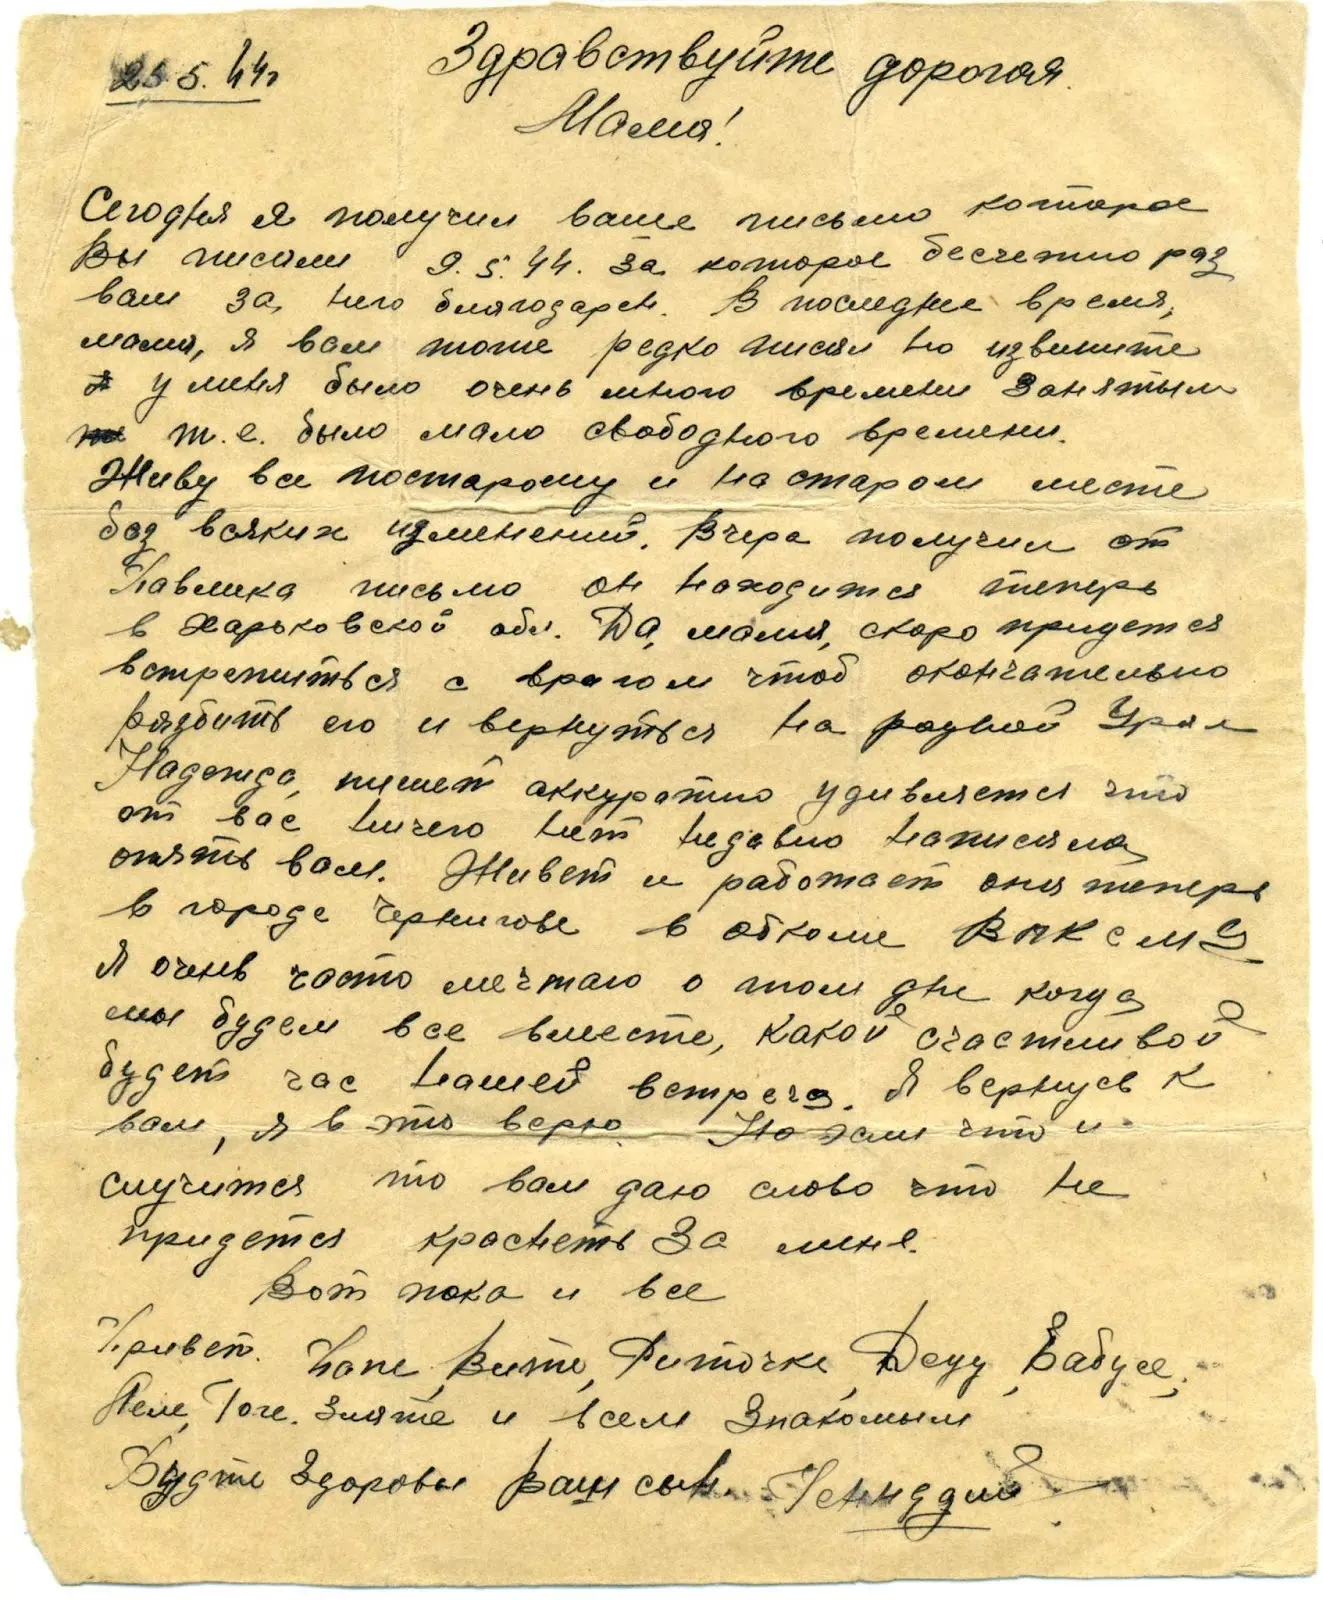 25 5. 44г
Здравствуйте дорогая
Мама!
Сегодня я получил ваше письмо которое
Вы писали 9.5.44. За которое бесчетно раз
вам за него благодарен. В последнее время,
мама, я вам тоже редко писал но извините
у меня было очень много времени занятым
т.е. было мало свободного времени.
Живу все постарому и на старом месте
без всяких изменений. Вчера получил от
Павлика письмо он находится теперь
в Харьковской обл. Да, мама, скоро придется
встретиться с врагом чтоб окончательно
разбить его и вернуться на родной Урал
Надежда, пишет аккуратно удивляется что
от вас ничего нет недавно написала
опять вам. Живет и работает она теперь
в городе Чернигове в обкоме ВЛКСМУ
Я очень часто мечтаю о том дне когда
мы будем все вместе, какой счастливой
будет час нашей встречи. Я вернусь к
вам, я в это верю. Но если что и
случится то вам даю слово что не
придется краснеть за меня.
Вот пока и все
Привет. Папе, Вите, Риточке, Деду, Бабусе,
Леле, Тоге. Зляте и всем знакомым
Будте здоровы Ваш сын. Геннадий